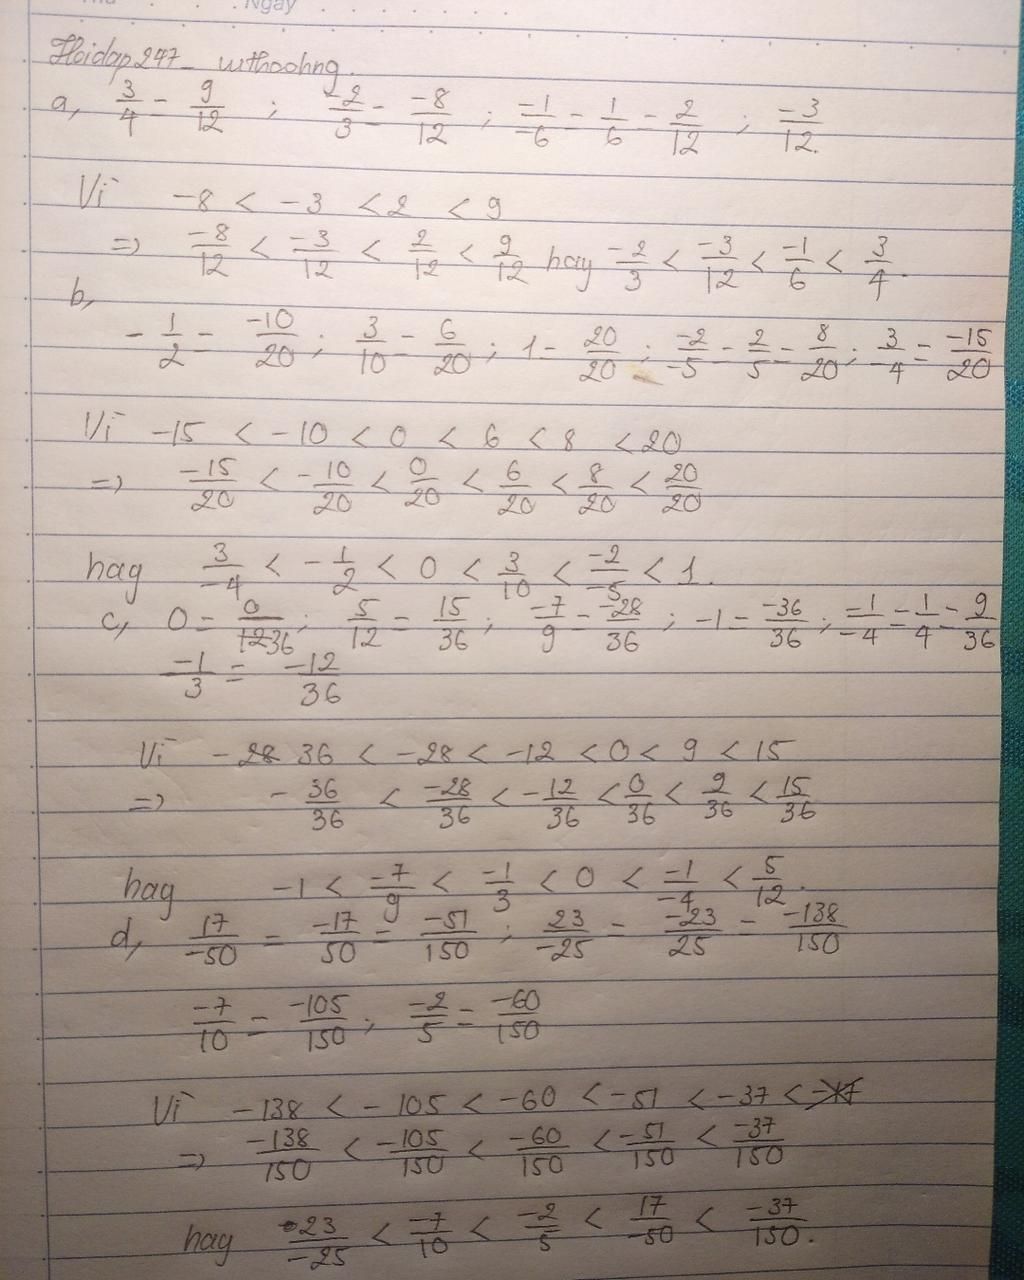 Ngày
Hoidap247_ wthoohng.
a, 3/4 = 9/12 ; -2/3 = -8/12 ; -1/-6 = 1/6 = 2/12 ; -3/12.
Vì -8 < -3 < 2 < 9
=> -8/12 < -3/12 < 2/12 < 9/12 hay -2/3 < -3/12 < -1/6 < 3/4.
b,
-1/2 = -10/20 ; 3/10 = 6/20 ; 1 = 20/20 ; -2/-5 = 2/5 = 8/20 ; 3/-4 = -15/20
Vì -15 < -10 < 0 < 6 < 8 < 20
=> -15/20 < -10/20 < 0/20 < 6/20 < 8/20 < 20/20
hay 3/-4 < -1/2 < 0 < 3/10 < -2/-5 < 1.
c, 0 = 0/36 ; 5/12 = 15/36 ; -7/9 = -28/36 ; -1 = -36/36 ; -1/-4 = 1/4 = 9/36
-1/3 = -12/36
Vì -28 36 < -28 < -12 < 0 < 9 < 15
=> -36/36 < -28/36 < -12/36 < 0/36 < 9/36 < 15/36
hay -1 < -7/9 < -1/3 < 0 < -1/-4 < 5/12.
d, 17/-50 = -17/50 = -51/150 ; 23/-25 = -23/25 = -138/150
-7/10 = -105/150 ; -2/5 = -60/150
Vì -138 < -105 < -60 < -51 < -37 <
=> -138/150 < -105/150 < -60/150 < -51/150 < -37/150
hay 23/-25 < -7/10 < -2/5 < 17/-50 < -37/150.